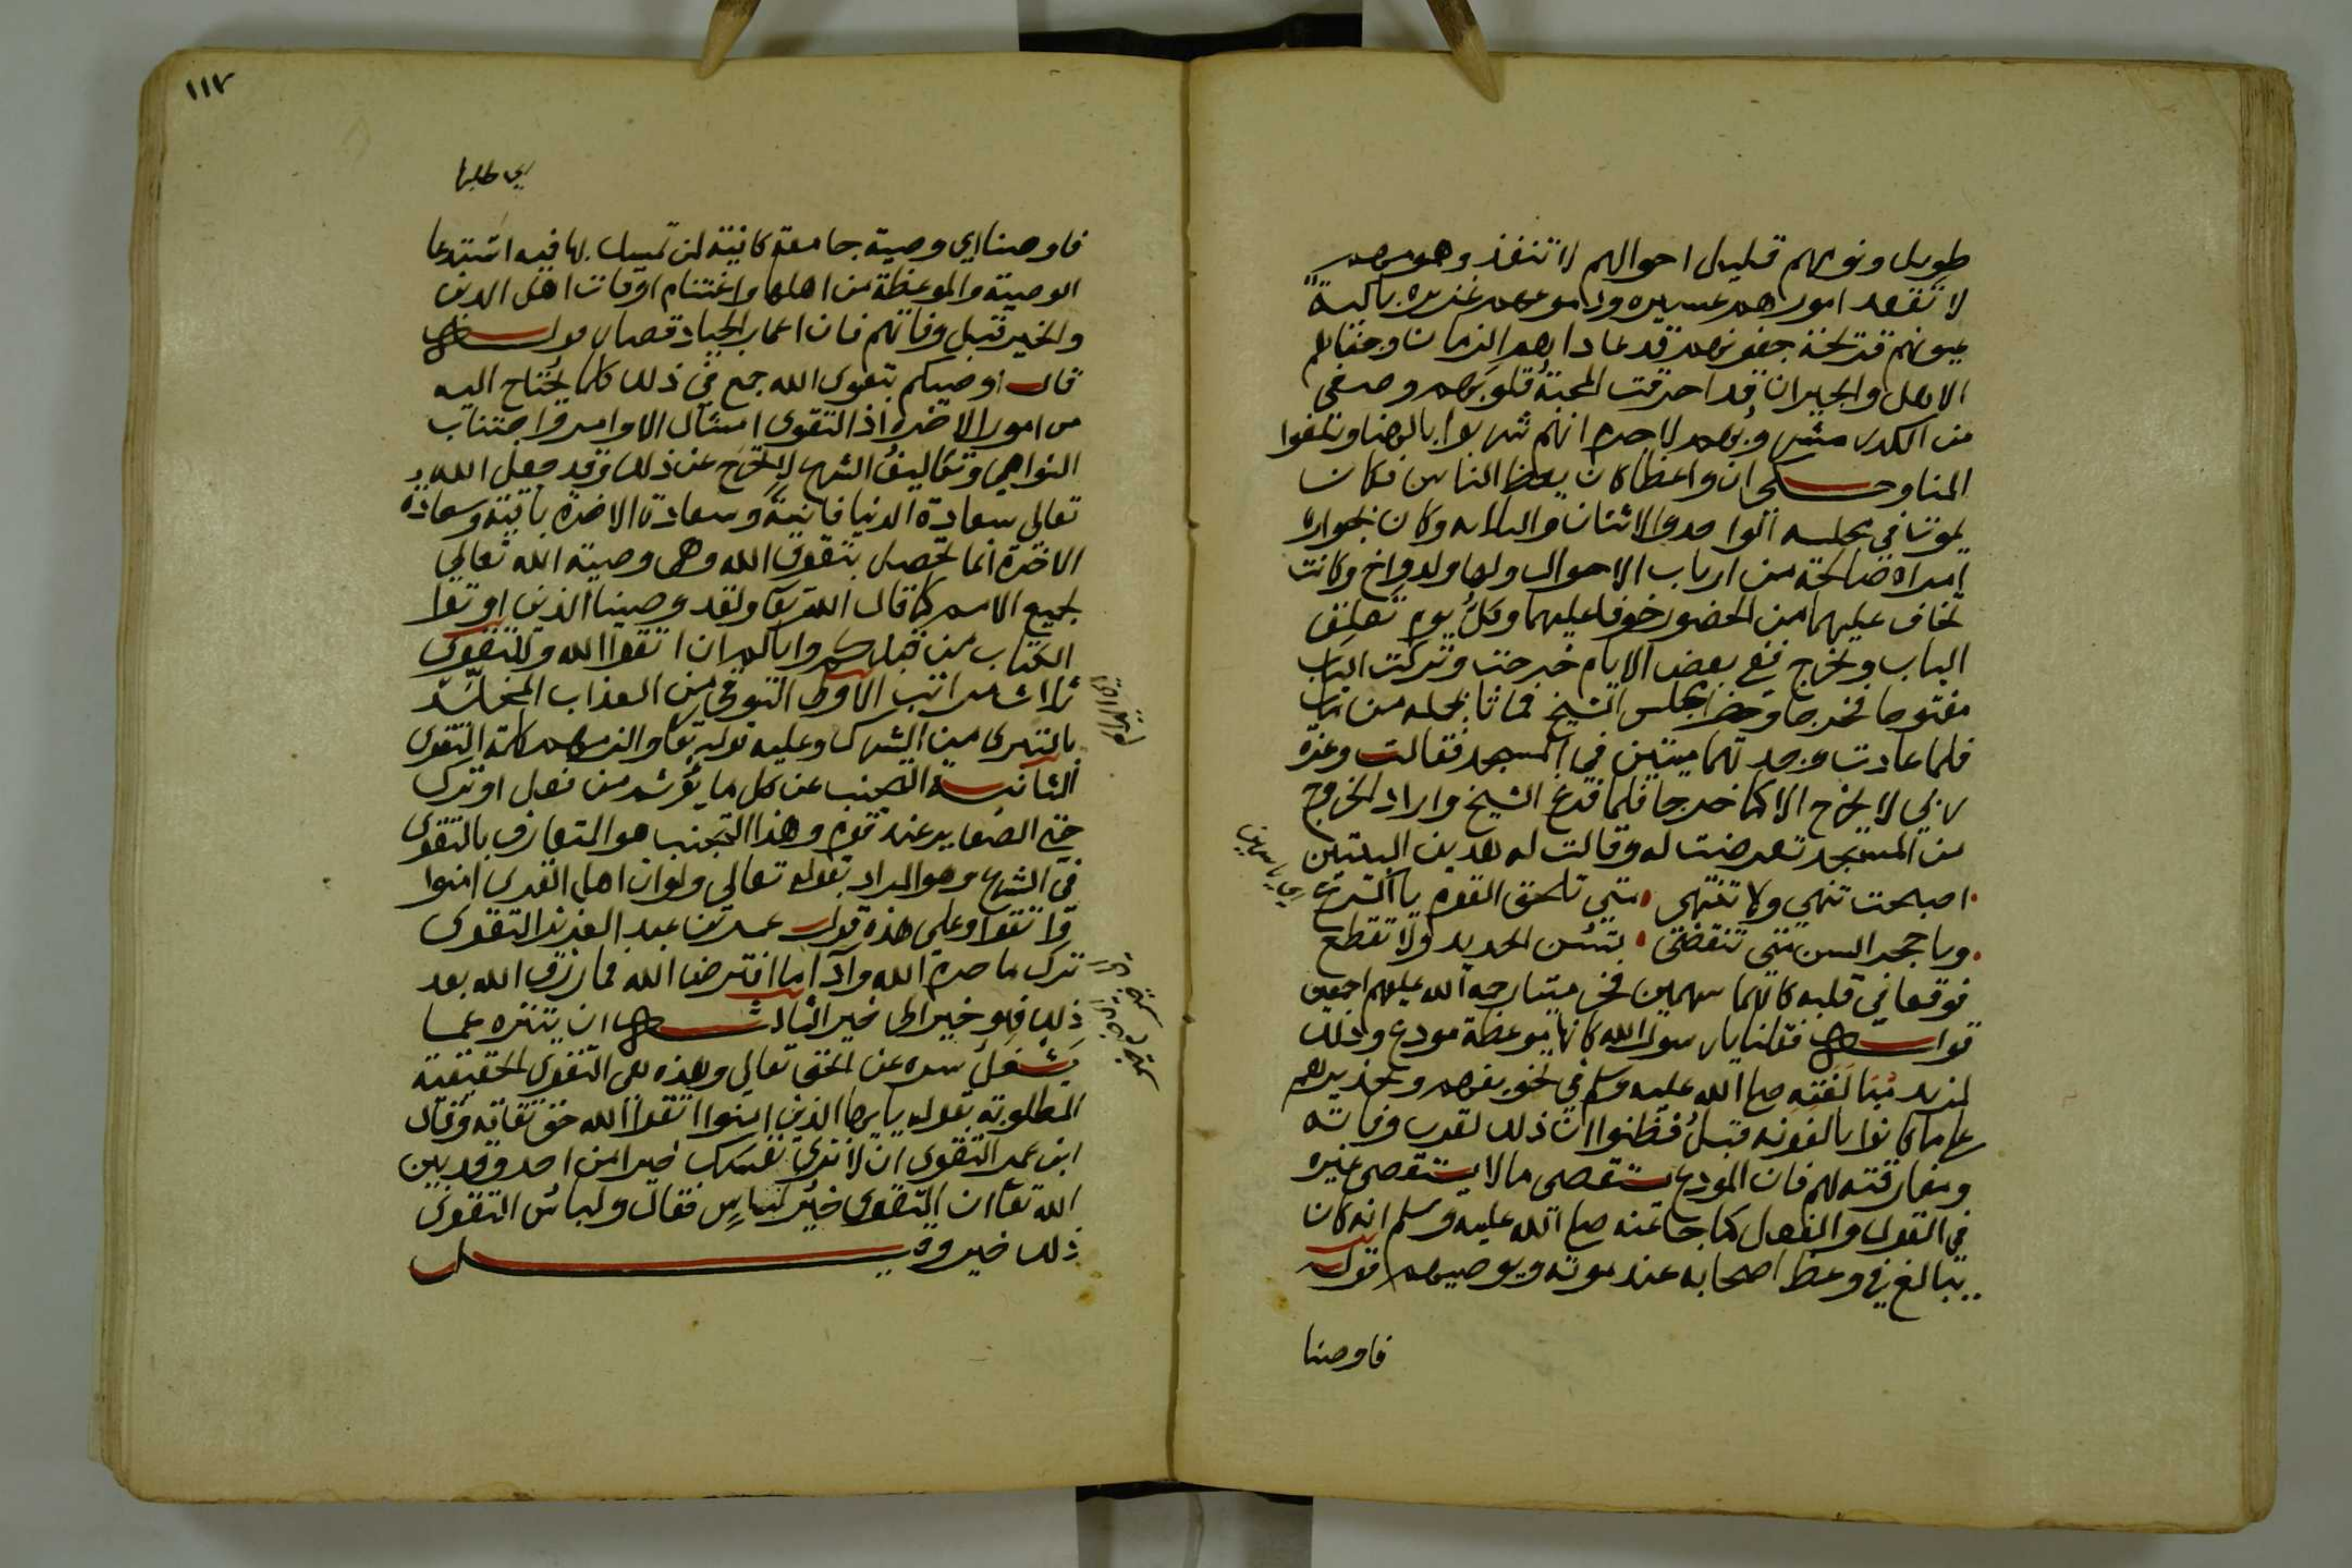 طويل ونومهم قليل احوالهم لا تنفذ وهمومهم
لا تفقد امورهم عسيره ودموعهم غزيره باكية
عيونهم قرحة جفونهم قد عاداهم الزمان وجفاهم
الاهل والجيران قد احرقت المحبة قلوبهم وصفى
من الكدر مشروبهم لاجرم انهم شربوا بالهنا وبلغوا
المنا وحكى ان واعظا كان يعظ الناس فكان
يموت في مجلسه الواحد والاثنان والثلاثه وكان بجواره
امراة صالحة من ارباب الاحوال ولها ولد واخ وكانت
تخاف عليهما من الحضور خوفا عليهما وكل يوم تغلق
الباب وتخرج ففي بعض الايام خرجت وتركت الباب
مفتوحا فخرجا وحضرا مجلس الشيخ فماتا بجمله من مات
فلما عادت وجدتهما ميتين في المسجد فقالت وعزة
ربي لا يخرج الا كما خرجا فلما فرغ الشيخ واراد الخروج
من المسجد تعرضت له وقالت له هذين البيتين
اصبحت تنهي ولا تنتهي متى تلحق القوم يا اكتع
ويا حجر السن متى تنقضي بتسن الحديد ولا تقطع
فوقعا في قلبه كانهما سهمين فخر ميتا رحمة الله عليهم اجمعين
قوله فقلنا يا رسول الله كانها موعظة مودع وذلك
لمزيد مبالغته صلى الله عليه وسلم في تخويفهم وتحذيرهم
على ما كانوا يالفونه قبل فظنوا ان ذلك لقرب وفاته
ومفارقته لهم فان المودع يستقصي ما لا يستقصي غيره
في القول والفعل كما جا عنه صلى الله عليه وسلم انه كان
يبالغ في وعظ اصحابه عند موته ويوصيهم قوله
فاوصنا
١١٧
فاوصنا اي وصية جامعة كافية لمن تمسك بها فيه استدعا
الوصية والموعظة من اهلها واغتنام اوقات اهل الدين
والخير قبل وفاتهم فان اعمار الجياد قصار قوله
قال اوصيكم بتقوى الله جمع في ذلك كلما يحتاج اليه
من امور الاخرة اذ التقوى امتثال الاوامر واجتناب
النواهي وتكاليف الشرع لا تخرج عن ذلك وقد جعل الله
تعالى سعادة الدنيا فانية وسعادة الاخرة باقية وسعادة
الاخرة انما تحصل بتقوى الله وهي وصية الله تعالى
لجميع الامم كما قال الله تعا ولقد وصينا الذين اوتوا
الكتاب من قبلكم واياكم ان اتقوا الله وللتقوى
ثلاث مراتب الاولى التوقي من العذاب المخلد
بالتبري من الشرك وعليه قوله تعا والزمهم كلمة التقوى
الثانية التجنب عن كل ما يؤثم من فعل او ترك
حتى الصغاير عند قوم وهذا التجنب هو المتعارف بالتقوى
في الشرع وهو المراد بقوله تعالى ولو ان اهل القرى امنوا
واتقوا وعلى هذه قول عمر بن عبد العزيز التقوى
ترك ما حرم الله وادا ما افترض الله فما رزق الله بعد
ذلك فهو خير الى خير الثالث ان يتنزه عما
يشغل سره عن الحق تعالى وهذه هى التقوى الحقيقية
المطلوبة بقوله يايها الذين امنوا اتقوا الله حق تقاته وقال
ابن عمر التقوى ان لا ترى نفسك خيرا من احد وقد بين
الله تعا ان التقوى خير لباس فقال ولباس التقوى
ذلك خير وقيل